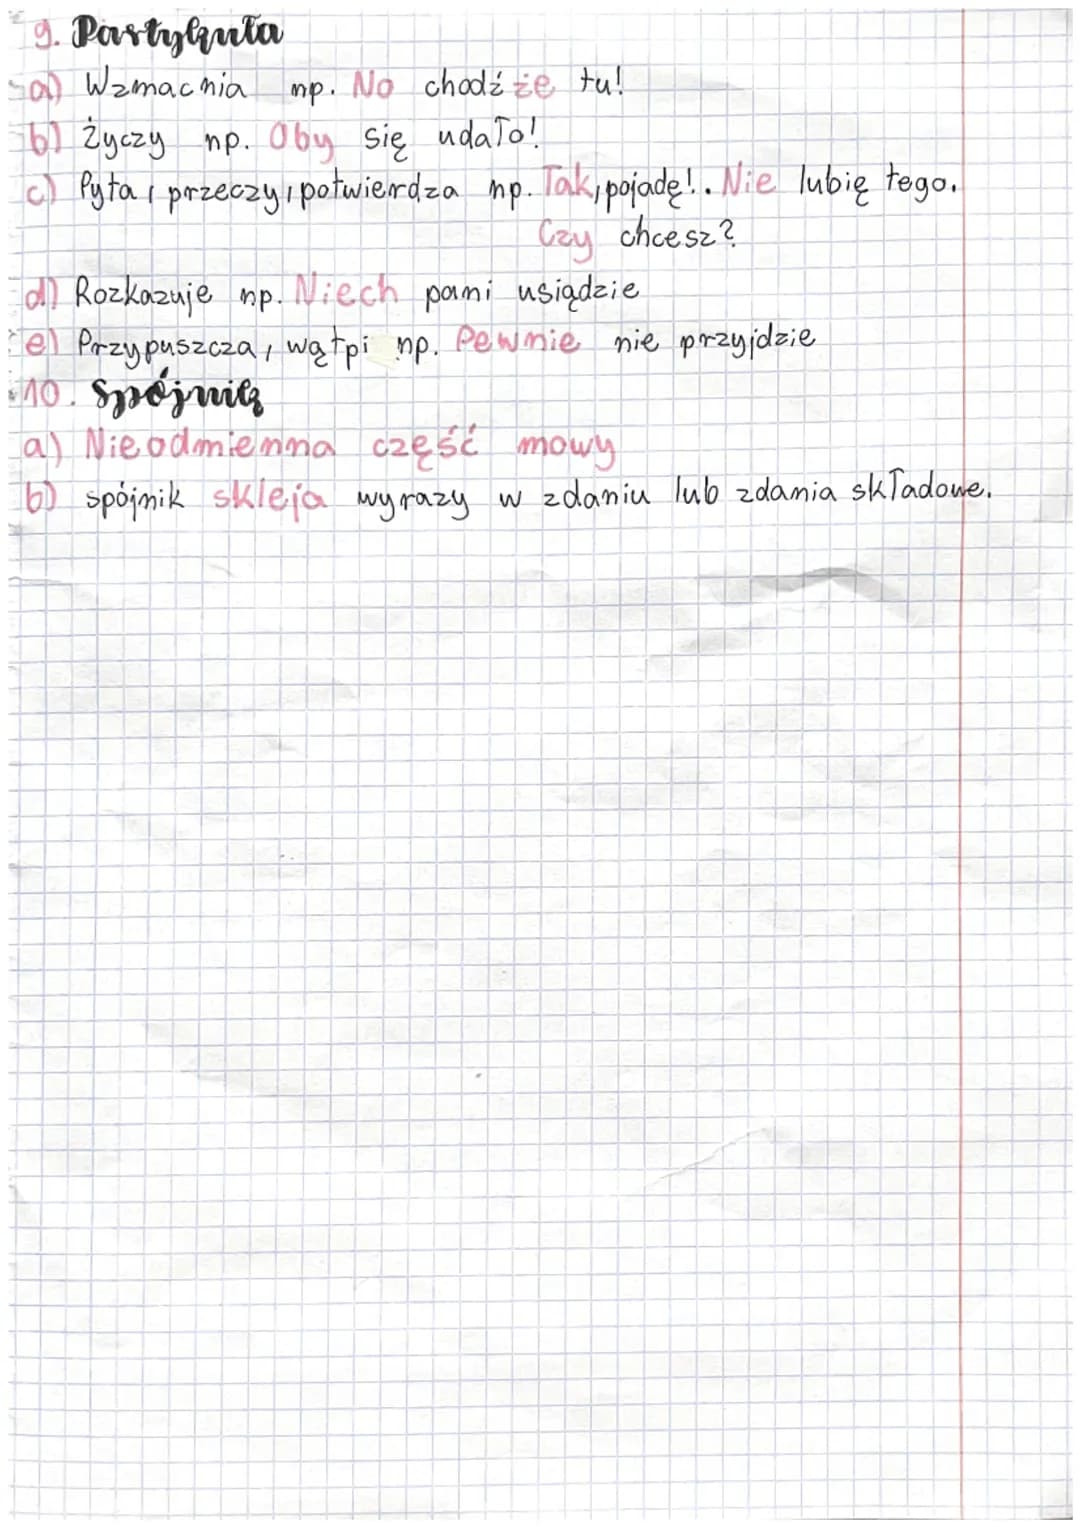 9. Partykuła
a) Wzmacnia np. No chodź że tu!
b) Życzy np. Oby się udało!
c) Pyta, przeczy, potwierdza np. Tak, pojadę!. Nie lubię tego.
Czy chcesz?
d) Rozkazuje np. Niech pani usiądzie
e) Przypuszcza, wątpi np. Pewnie nie przyjdzie
10. Spójnik
a) Nieodmienna część mowy
b) spójnik skleja wyrazy w zdaniu lub zdania składowe.